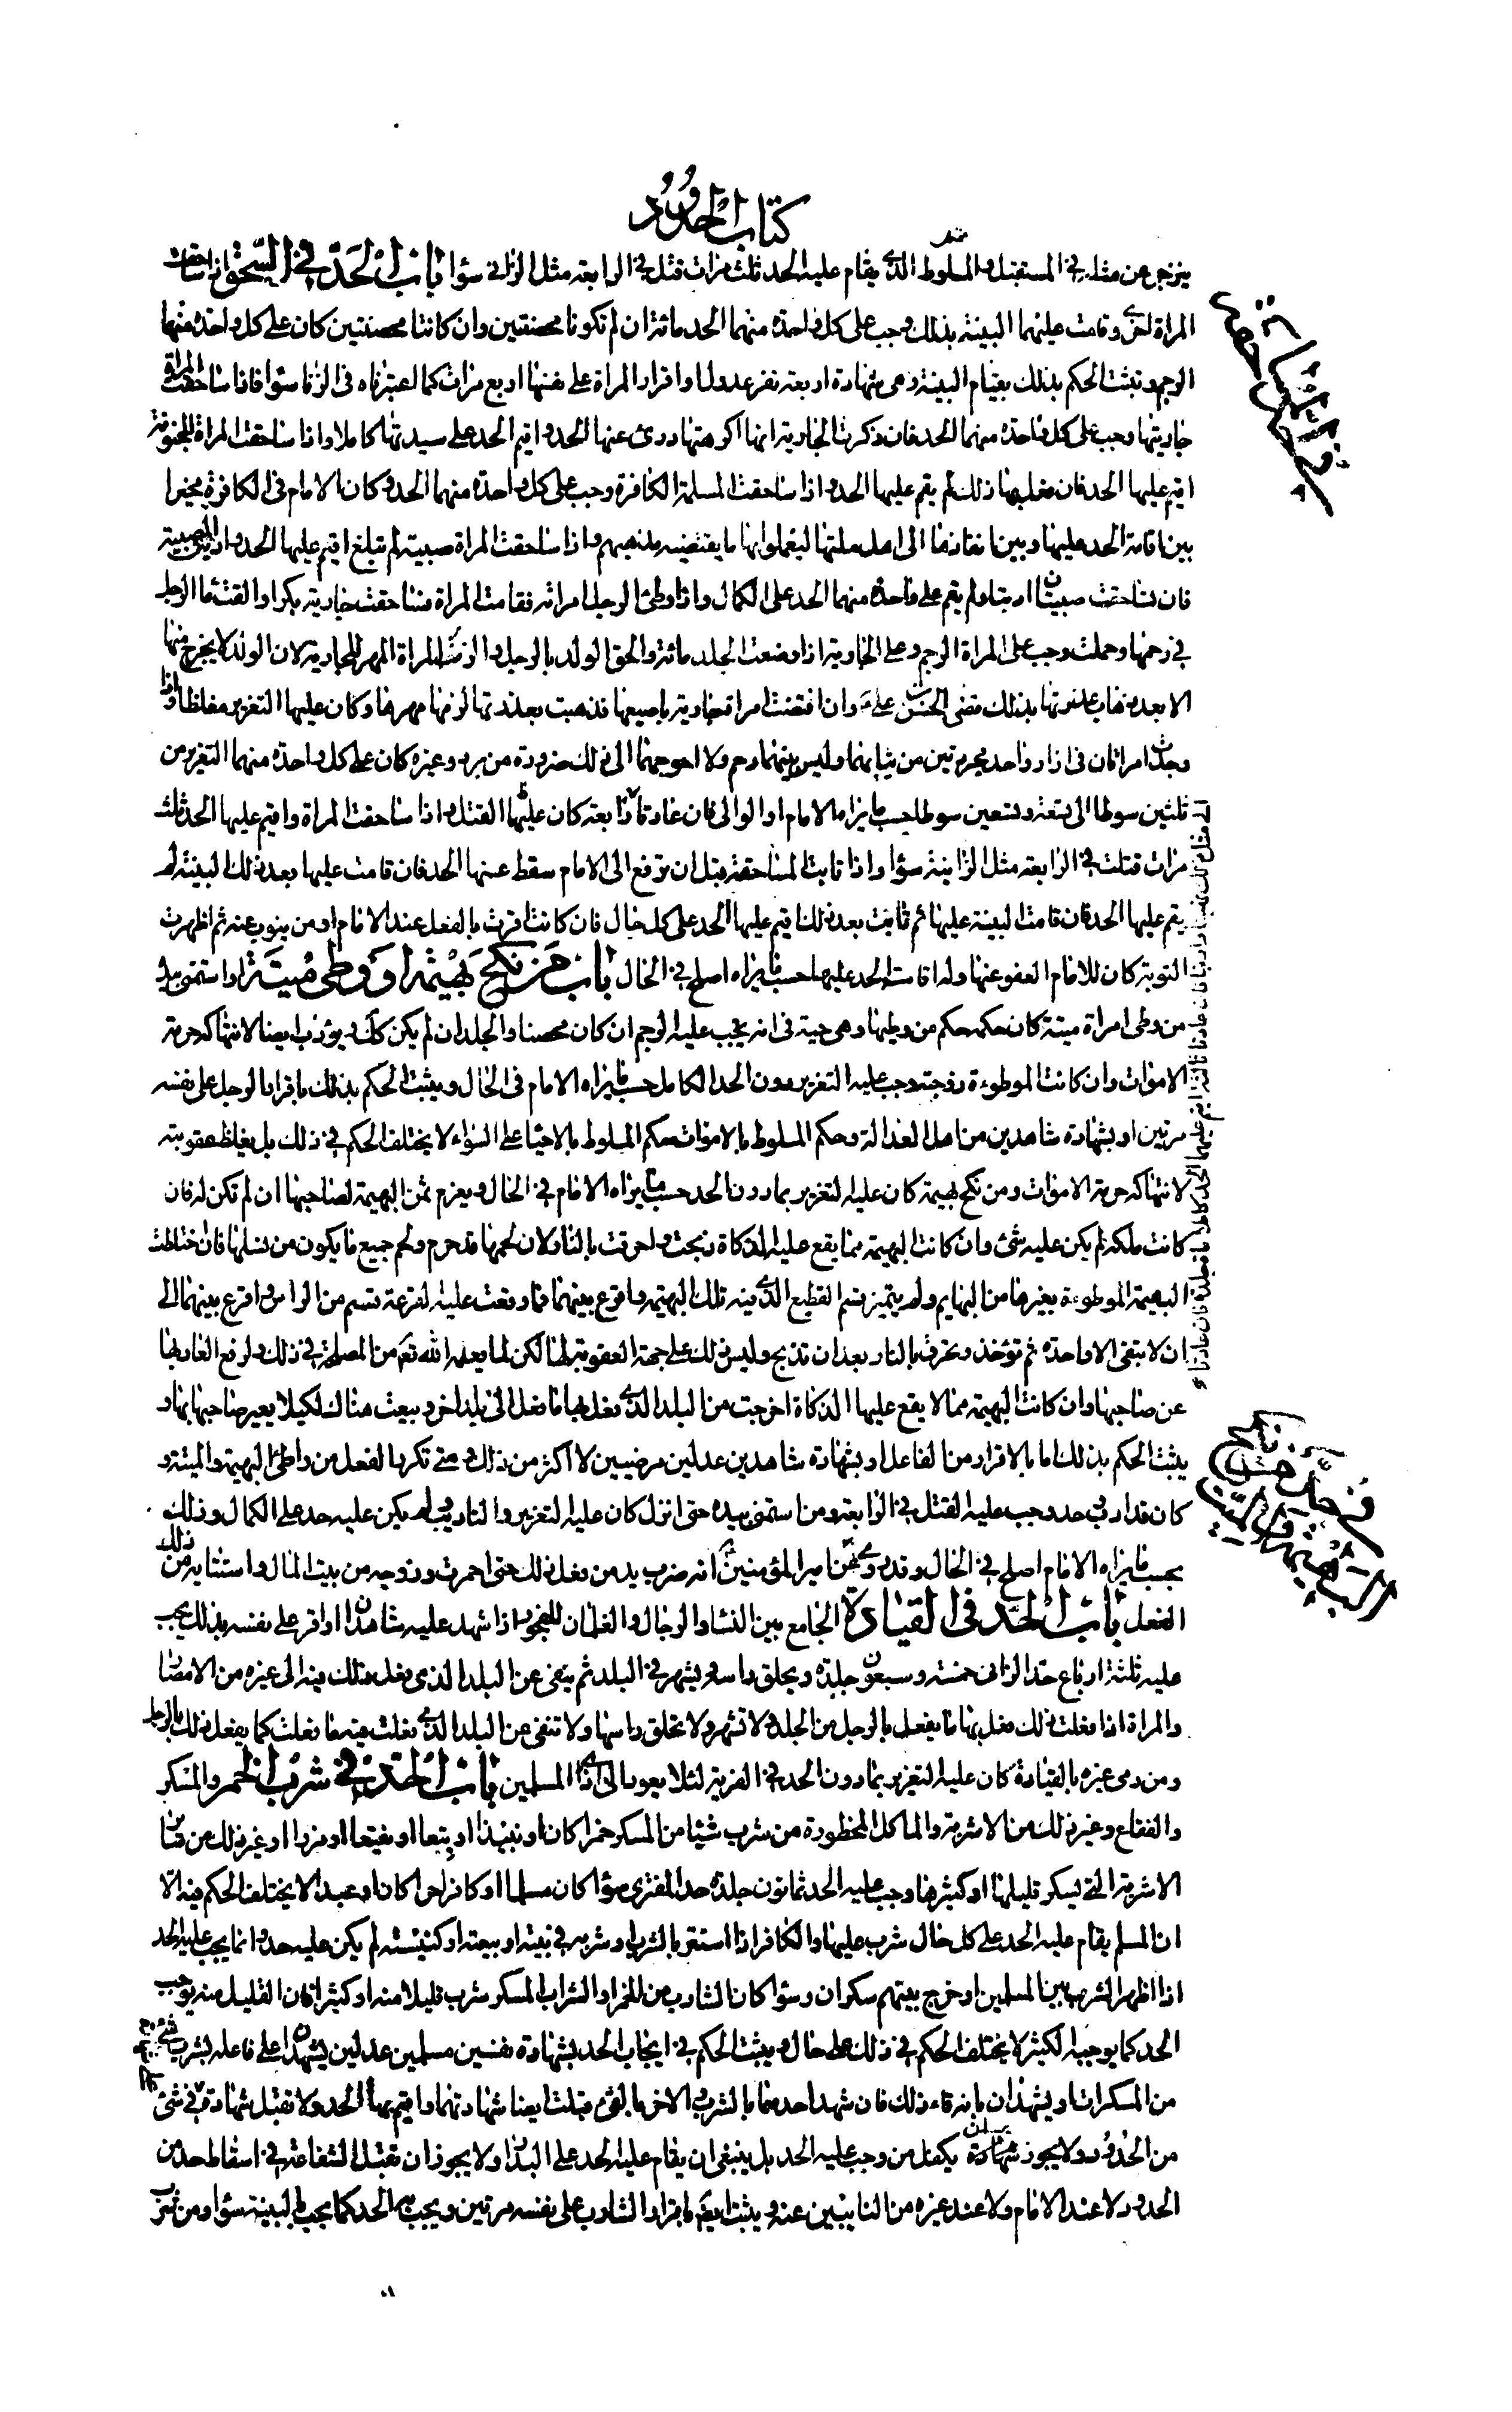 كتاب الحدود
ينزجر عن مثله في المستقبل والمتلوط الذي يقام عليه الحد ثلث مرات قتل في الرابعة مثل الزاني سواء باب الحد في السحق اذا ساحقت
المراة اخرى وقامت عليهما البينة بذلك وجب على كل واحدة منهما الحد مائة ان لم تكونا محصنتين وان كانتا محصنتين كان على كل واحدة منهما
الرجم ويثبت الحكم بذلك بقيام البينة وهى شهادة اربعة نفر عدول او اقرار المراة على نفسها اربع مرات كما اعتبرناه في الزنا سواء فاذا ساحقت المراة
جاريتها وجب على كل واحدة منهما الحد فان ذكرت الجارية انها اكرهتها درئ عنها الحد واقيم الحد على سيدتها كاملا واذا ساحقت المراة المجنونة
اقيم عليها الحد فان فعل بها ذلك لم يقم عليها الحد واذا ساحقت المسلمة الكافرة وجب على كل واحدة منهما الحد وكان الامام في الكافرة مخيرا
بين اقامة الحد عليها وبين انفاذها الى اهل ملتها ليعملوا بها ما يقتضيه مذهبهم واذا ساحقت المراة صبية لم تبلغ اقيم عليها الحد وادبت الصبية
فان تساحقت صبيتان ادبتا ولم يقم على واحدة منهما الحد على الكمال واذا وطئ الرجل امراته فقامت المراة فساحقت جارية بكرا والقت ماء الرجل
في رحمها وحملت وجب على المراة الرجم وعلى الجارية اذا وضعت الجلد مائة والحق الولد بالرجل والزمت المراة المهر للجارية لان الولد لا يخرج منها
الا بعد ذهاب عذرتها بذلك قضى الحسن بن على ع وان افتضت امراة جارية باصبعها فذهبت بعذرتها لزمها مهرها وكان عليها التعزير مغلظا واذا
وجدت امراتان في ازار واحد مجردتين من ثيابهما وليس بينهما رحم ولا احوجهما الى ذلك ضرورة من برد وغيره كان على كل واحدة منهما التعزير من
ثلثين سوطا الى تسعة وتسعين سوطا حسب ما يراه الامام او الوالي فان عادتا رابعة كان عليهما القتل واذا ساحقت المراة واقيم عليها الحد ثلث
مرات قتلت في الرابعة مثل الزانية سواء واذا تابت المساحقة قبل ان ترفع الى الامام سقط عنها الحد فان قامت عليها بعد ذلك البينة لم
يقم عليها الحد فان قامت البينة عليها ثم تابت بعد ذلك اقيم عليها الحد على كل حال فان كانت اقرت بالفعل عند الامام او من ينوب عنه ثم اظهرت
التوبة كان للامام العفو عنها وله اقامة الحد عليها حسب ما يراه اصلح في الحال باب من نكح بهيمة او وطى ميتة او استمنى بيده
من وطى امراة ميتة كان حكمه حكم من وطئها وهى حية في انه يجب عليه الرجم ان كان محصنا والجلد ان لم يكن كذلك ويؤدب ايضا لانتهاكه حرمة
الاموات وان كانت الموطوءة زوجته وجب عليه التعزير دون الحد الكامل حسب ما يراه الامام في الحال ويثبت الحكم بذلك باقرار الرجل على نفسه
مرتين او بشهادة شاهدين من اهل العدالة وحكم المتلوط بالاموات حكم المتلوط بالاحياء على السواء لا يختلف الحكم في ذلك بل يغلظ عقوبته
لانتهاكه حرمة الاموات ومن نكح بهيمة كان عليه التعزير بما دون الحد حسب ما يراه الامام في الحال ويغرم ثمن البهيمة لصاحبها ان لم تكن له فان
كانت ملكه لم يكن عليه شئ وان كانت البهيمة مما يقع عليه الذكاة ذبحت واحرقت بالنار لان لحمها قد حرم ولحم جميع ما يكون من نسلها فان اختلطت
البهيمة الموطوءة بغيرها من البهايم ولم يتميز قسم القطيع الذي فيه تلك البهيمة واقرع بينهما فما وقعت عليه القرعة قسم من الراس واقرع بينهما الى
ان لا تبقى الا واحدة ثم تؤخذ وتحرق بالنار بعد ان تذبح وليس ذلك على جهة العقوبة لها لكن لما يعلمه الله تعم من المصلحة في ذلك ولرفع العار بها
عن صاحبها وان كانت البهيمة مما لا يقع عليها الذكاة اخرجت من البلد الذي فعل بها ما فعل الى بلد اخر وبيعت هناك لكيلا يعير صاحبها بها و
يثبت الحكم بذلك اما بالاقرار من الفاعل او بشهادة شاهدين عدلين مرضيين لا اكثر من ذلك ومتى تكرر الفعل من واطئ البهيمة والميتة و
كان قد ادب وحد وجب عليه القتل في الرابعة ومن استمنى بيده حتى انزل كان عليه التعزير والتاديب ولم يكن عليه حد على الكمال وذلك
بحسب ما يراه الامام اصلح في الحال وقد روى عن امير المؤمنين ع انه ضرب يد من فعل ذلك حتى احمرت وزوجه من بيت المال واستتابه من ذلك
الفعل باب الحد في القيادة الجامع بين النساء والرجال والغلمان للفجور اذا شهد عليه شاهدان او اقر على نفسه بذلك يجب
عليه ثلثة ارباع حد الزاني خمسة وسبعون جلدة ويحلق راسه ويشهر في البلد ثم ينفى عن البلد الذي فعل ذلك فيه الى غيره من الامصار
والمراة اذا فعلت ذلك فعل بها ما يفعل بالرجل من الجلد ولا تشهر ولا تحلق راسها ولا تنفى عن البلد الذي فعلت فيه ما فعلت كما يفعل ذلك بالرجل
ومن رمى غيره بالقيادة كان عليه التعزير بما دون الحد في الفرية لئلا يعود الى اذى المسلمين باب الحد في شرب الخمر والمسكر
والفقاع وغير ذلك من الاشربة والماكل المحظورة من شرب شيئا من المسكر خمرا كان او نبيذا او بتعا او نقيعا او مزرا او غير ذلك من ساير
الاشربة التي يسكر قليلها او كثيرها وجب عليه الحد ثمانون جلدة حد المفترى سواء كان مسلما او كافرا حرا كان او عبدا لا يختلف الحكم فيه الا
ان المسلم يقام عليه الحد على كل حال شرب عليها والكافر اذا استتر بالشرب او شربه في بيته او بيعته او كنيسته لم يكن عليه حد وانما يجب عليه الحد
اذا اظهر الشرب بين المسلمين او خرج بينهم سكران وسواء كان الشارب من الخمر او الشراب المسكر شرب قليلا منه او كثيرا فان القليل منه يوجب
الحد كما يوجبه الكثير لا يختلف الحكم في ذلك على حال ويثبت الحكم في ايجاب الحد بشهادة نفسين مسلمين عدلين يشهدان على فاعله بشرب شئ
من المسكرات او يشهدان بانه قاء ذلك فان شهد احدهما بالشرب والاخر بالقئ قبلت ايضا شهادتهما واقيم بها الحد ولا تقبل شهادة في شئ
من الحدود ولا يجوز ان يكفل من وجب عليه الحد بل ينبغي ان يقام عليه الحد على البدار ولا يجوز ان تقبل الشفاعة في اسقاط حد من
الحدود لا عند الامام ولا عند غيره من النايبين عنه ويثبت ايضا باقرار الشارب على نفسه مرتين ويجب به الحد كما يجب بالبينة سواء ومن شرب